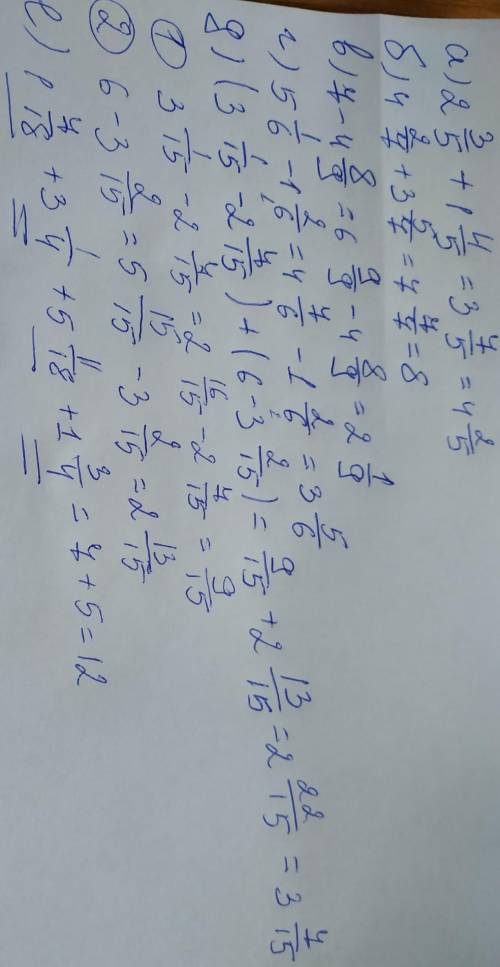 а) 2 3/5 + 1 4/5 = 3 7/5 = 4 2/5
б) 4 2/7 + 3 5/7 = 7 7/7 = 8
в) 7 - 4 8/9 = 6 9/9 - 4 8/9 = 2 1/9
г) 5 1/6 - 1 2/6 = 4 7/6 - 1 2/6 = 3 5/6
д) (3 1/15 - 2 7/15) + (6 - 3 2/15) = 9/15 + 2 13/15 = 2 22/15 = 3 7/15
① 3 1/15 - 2 7/15 = 2 16/15 - 2 7/15 = 9/15
② 6 - 3 2/15 = 5 15/15 - 3 2/15 = 2 13/15
е) 1 7/18 + 3 1/4 + 5 11/18 + 1 3/4 = 7 + 5 = 12